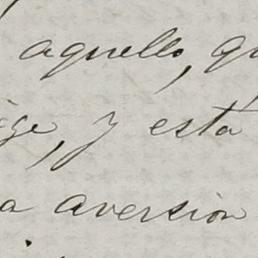 aquello, qu
ge, y está
a aversion